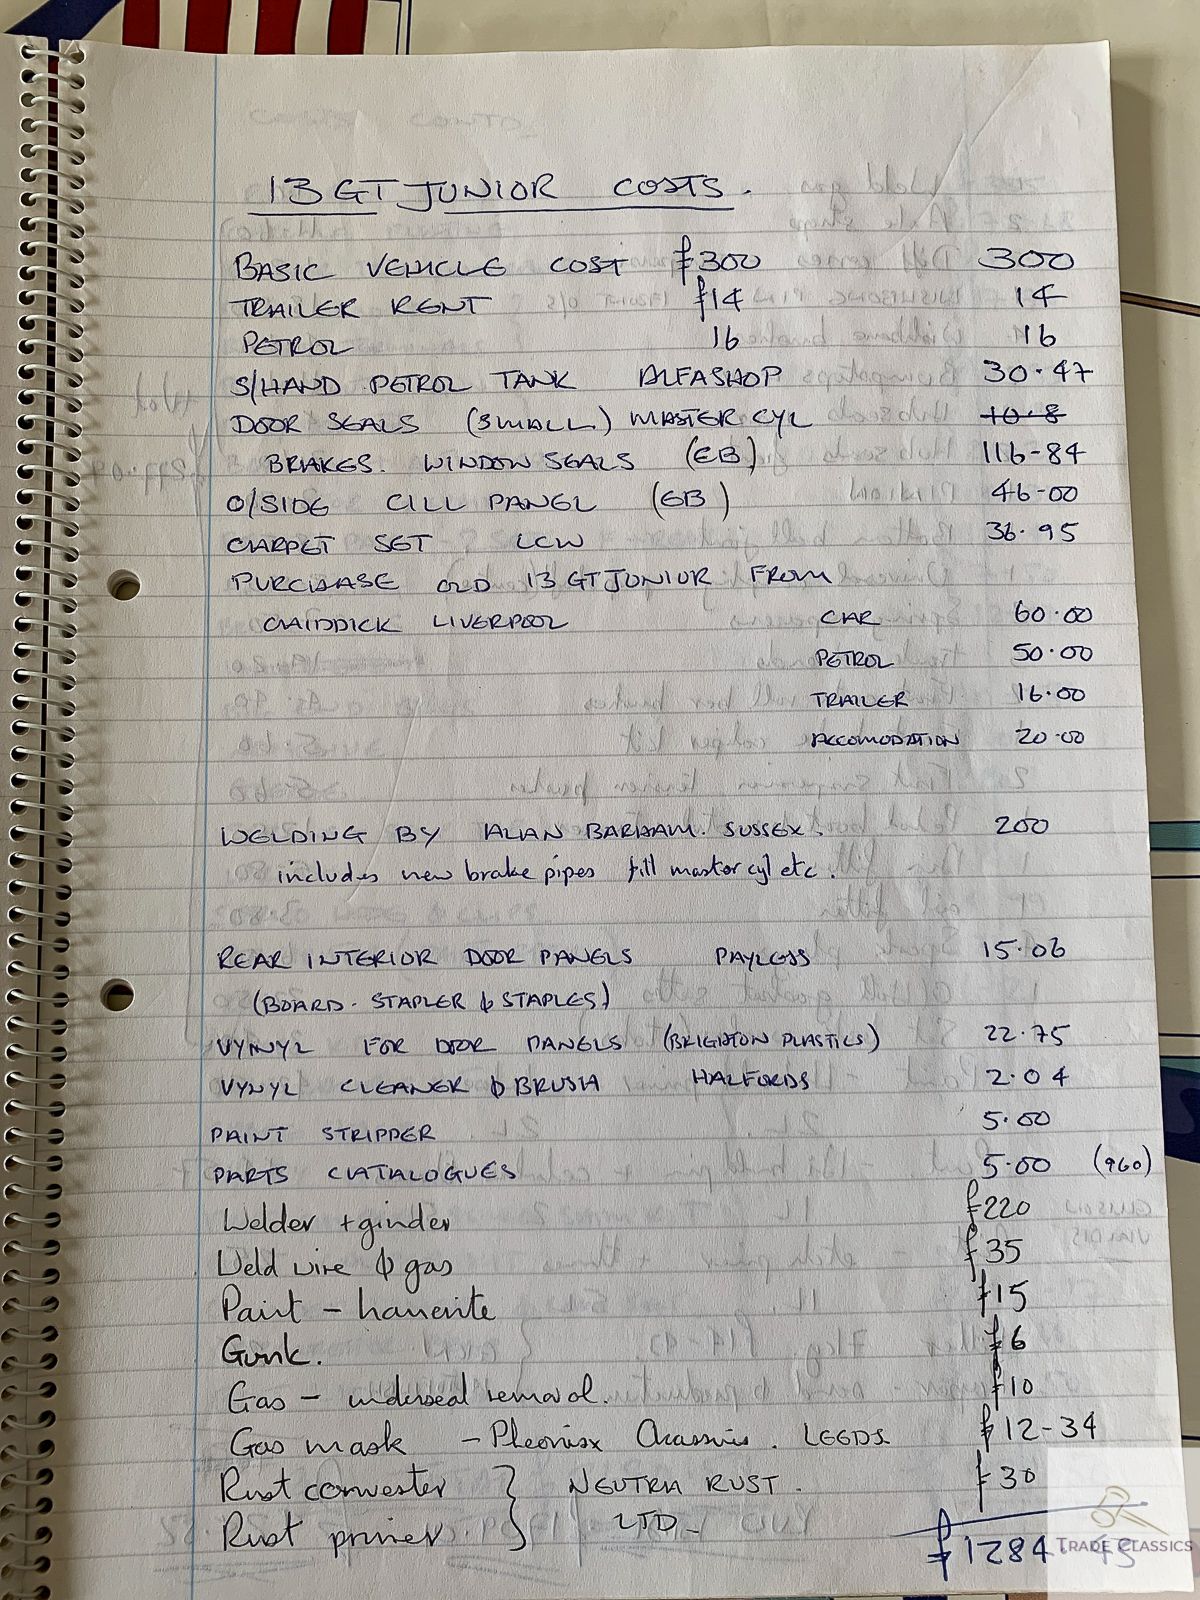 13 GT JUNIOR COSTS.
BASIC VEHICLE COST £300 300
TRAILER RENT £14 14
PETROL 16 16
S/HAND PETROL TANK ALFASHOP 30.47
DOOR SEALS (SMALL) MASTER CYL 10.8
BRAKES. WINDOW SEALS (EB) 116-84
O/SIDE CILL PANEL (EB) 46-00
CARPET SET LCW 36.95
PURCHASE OLD 13 GT JUNIOR FROM
CADDICK LIVERPOOL CAR 60.00
PETROL 50.00
TRAILER 16.00
ACCOMODATION 20.00
WELDING BY ALAN BARHAM. SUSSEX. 200
includes new brake pipes fill master cyl etc.
REAR INTERIOR DOOR PANELS PAYLESS 15.06
(BOARD. STAPLER & STAPLES)
VYNYL FOR DOOR PANELS (BRIGHTON PLASTICS) 22.75
VYNYL CLEANER & BRUSH HALFORDS 2.04
PAINT STRIPPER 5.00
PARTS CATALOGUES 5.00 (960)
Welder + ginder £220
Weld wire & gas £35
Paint - hamerite £15
Gunk. £6
Gas - underseal removal. £10
Gas mask - LEEDS £12-34
Rust converter } NEUTRA RUST. £30
Rust primer. } LTD-
£1284.45
TRADE CLASSICS